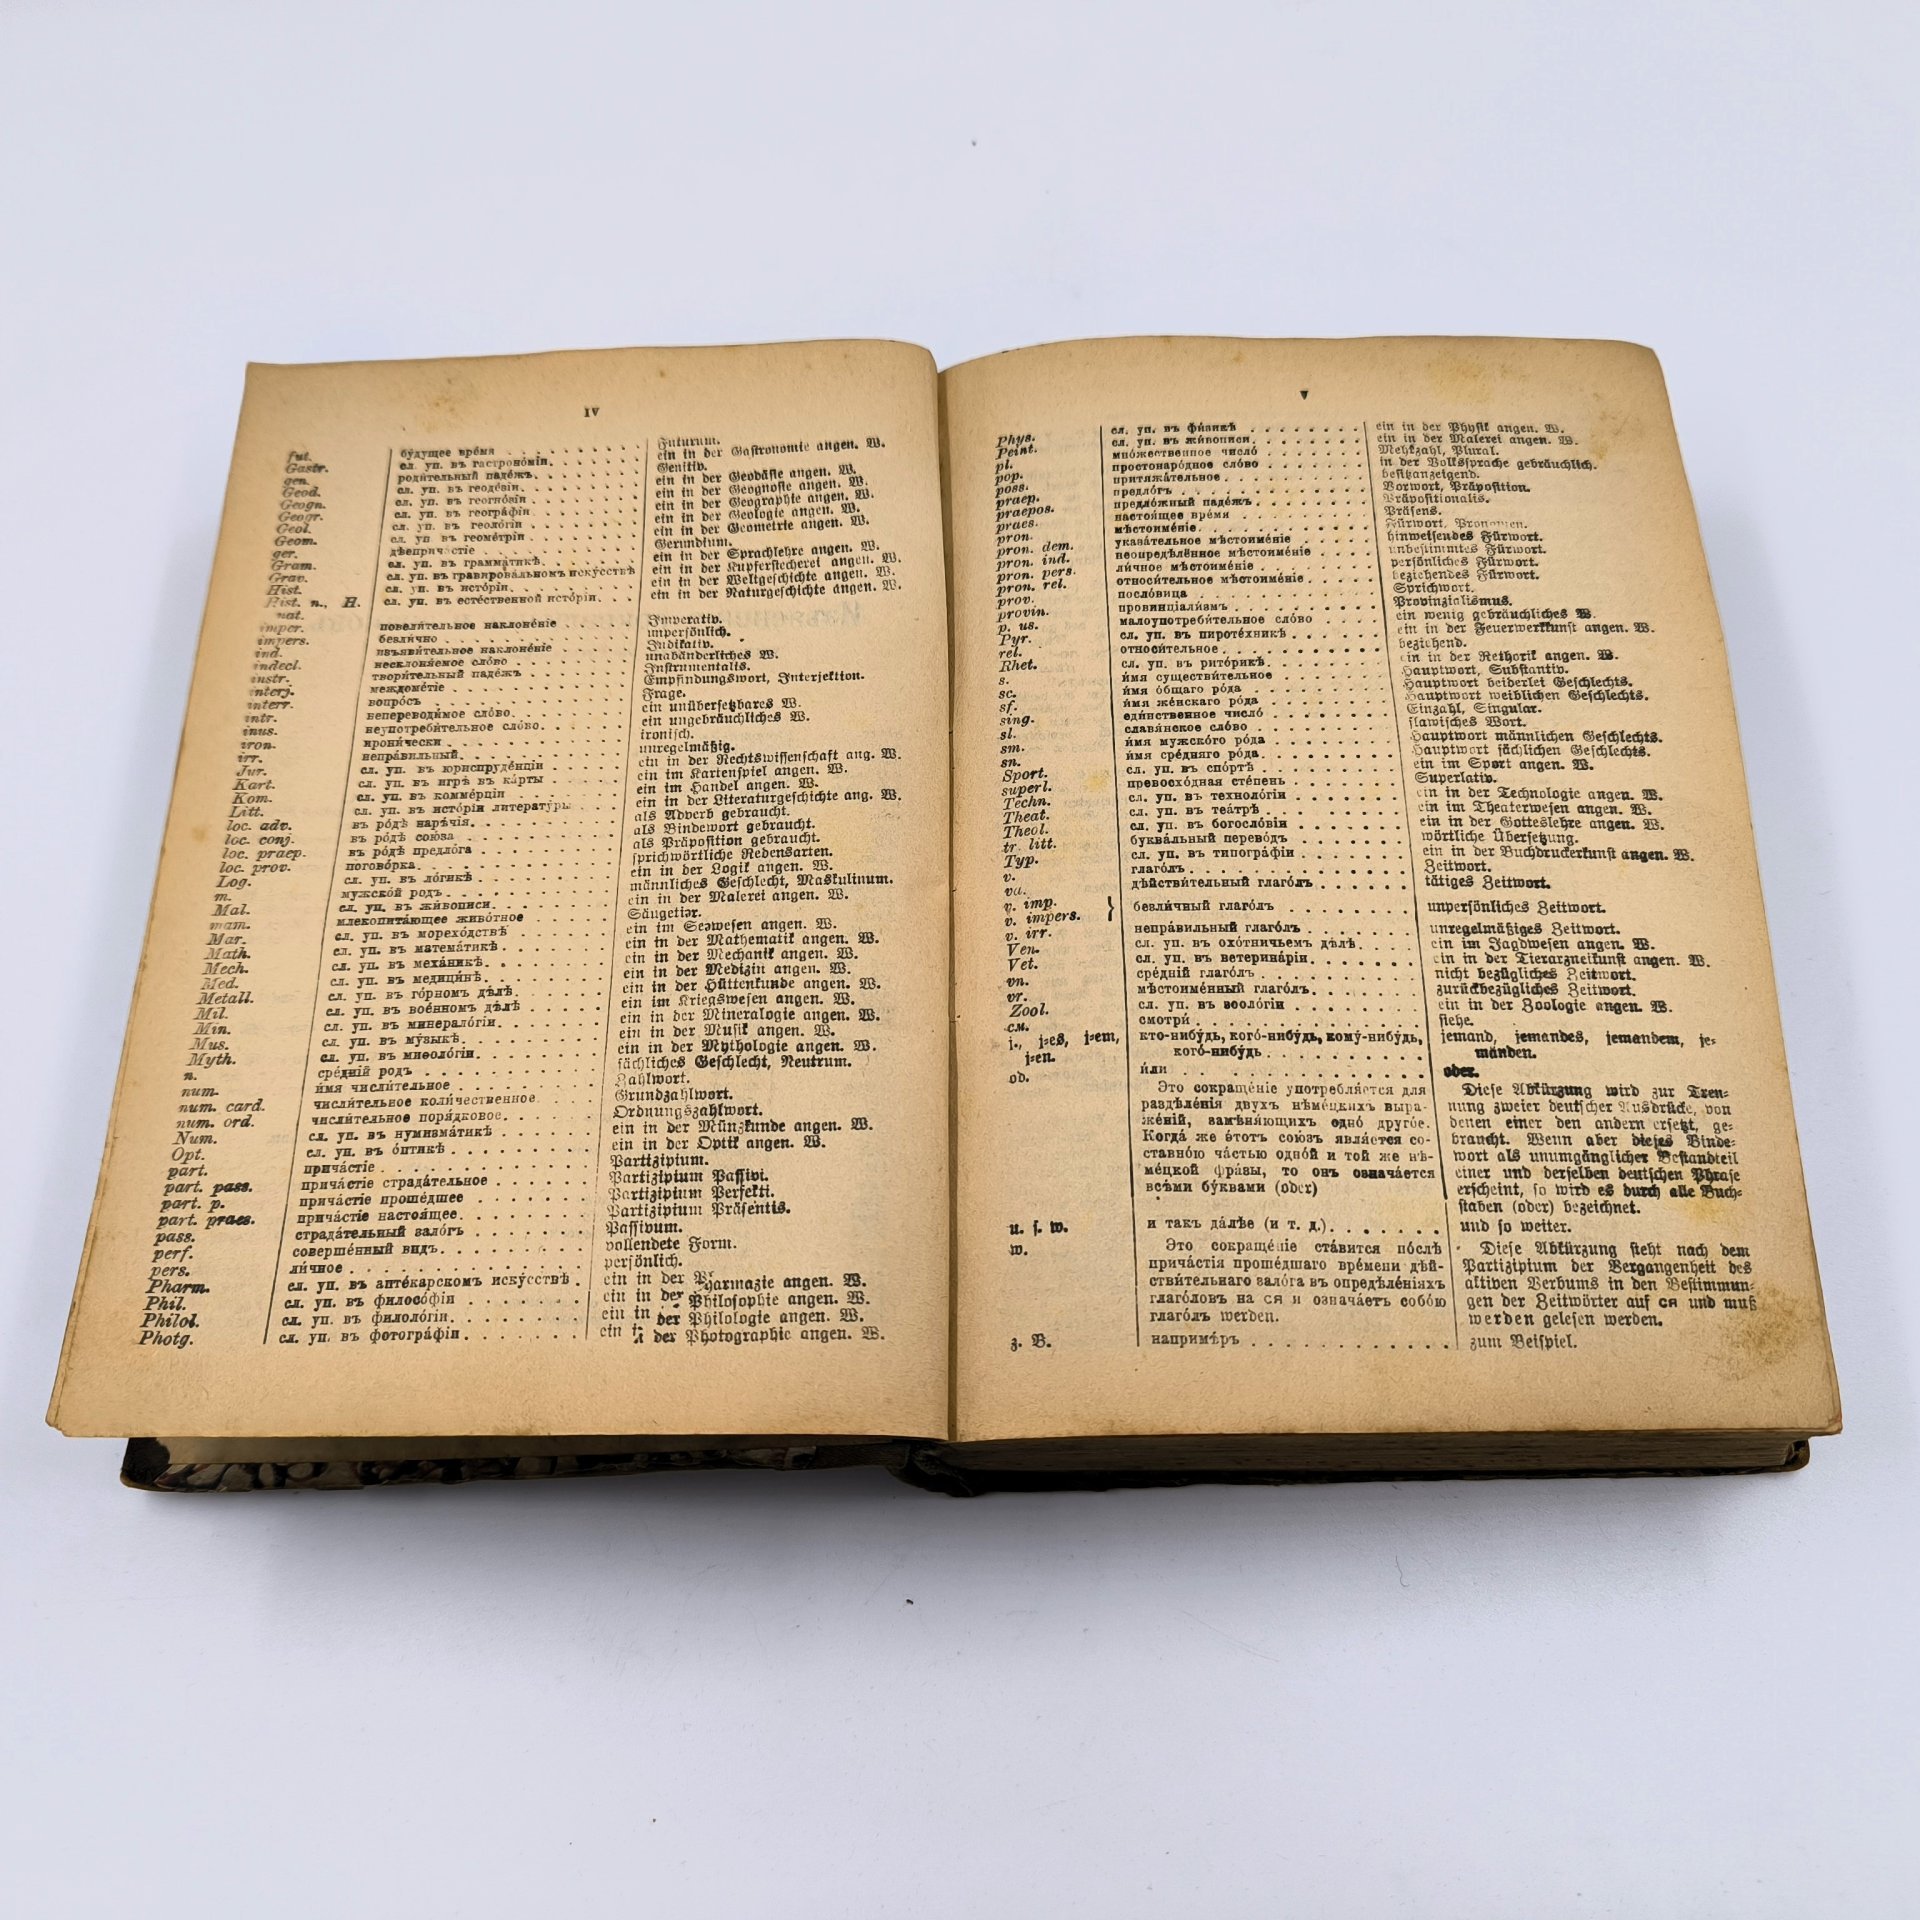 IV
fut. будущее вре́мя Futurum.
Gastr. сл. уп. въ гастроно́міи. ein in der Gastronomie angen. W.
gen. роди́тельный паде́жъ. Genitiv.
Geod. сл. уп. въ геоде́зіи. ein in der Geodäsie angen. W.
Geogn. сл. уп. въ геогно́зіи. ein in der Geognosie angen. W.
Geogr. сл. уп. въ геогра́фіи. ein in der Geographie angen. W.
Geol. сл. уп. въ геоло́гіи ein in der Geologie angen. W.
Geom. сл. уп. въ геоме́тріи ein in der Geometrie angen. W.
ger. дѣеприча́стіе Gerundium.
Gram. сл. уп. въ грамма́тикѣ. ein in der Sprachlehre angen. W.
Grav. сл. уп. въ гравирова́льномъ иску́сствѣ ein in der Kupferstecherei angen. W.
Hist. сл. уп. въ исто́ріи. ein in der Weltgeschichte angen. W.
Hist. n., H. nat. сл. уп. въ есте́ственной исто́ріи. ein in der Naturgeschichte angen. W.
imper. повели́тельное наклоне́ніе Imperativ.
impers. безли́чно unpersönlich.
ind. изъяви́тельное наклоне́ніе Indikativ.
indecl. несклоня́емое сло́во unabänderliches W.
instr. твори́тельный паде́жъ Instrumentalis.
interj. междоме́тіе Empfindungswort, Interjektion.
interr. вопро́съ Frage.
intr. непереводи́мое сло́во. ein unübersetzbares W.
inus. неупотреби́тельное сло́во. ein ungebräuchliches W.
iron. ирони́чески ironisch.
irr. непра́вильный. unregelmäßig.
Jur. сл. уп. въ юриспруде́нціи ein in der Rechtswissenschaft ang. W.
Kart. сл. уп. въ игрѣ въ ка́рты ein im Kartenspiel angen. W.
Kom. сл. уп. въ комме́рціи ein im Handel angen. W.
Litt. сл. уп. въ исто́ріи литерату́ры ein in der Literaturgeschichte ang. W.
loc. adv. въ ро́дѣ нарѣ́чія. als Adverb gebraucht.
loc. conj. въ ро́дѣ сою́за als Bindewort gebraucht.
loc. praep. въ ро́дѣ предло́га als Präposition gebraucht.
loc. prov. погово́рка. sprichwörtliche Redensarten.
Log. сл. уп. въ ло́гикѣ ein in der Logik angen. W.
m. мужско́й родъ. männliches Geschlecht, Maskulinum.
Mal. сл. уп. въ жи́вописи. ein in der Malerei angen. W.
mam. млекопита́ющее живо́тное Säugetier.
Mar. сл. уп. въ морехо́дствѣ ein im Seewesen angen. W.
Math. сл. уп. въ матема́тикѣ. ein in der Mathematik angen. W.
Mech. сл. уп. въ меха́никѣ. ein in der Mechanik angen. W.
Med. сл. уп. въ медици́нѣ. ein in der Medizin angen. W.
Metall. сл. уп. въ го́рномъ дѣ́лѣ. ein in der Hüttenkunde angen. W.
Mil. сл. уп. въ вое́нномъ дѣ́лѣ ein im Kriegswesen angen. W.
Min. сл. уп. въ минерало́гіи. ein in der Mineralogie angen. W.
Mus. сл. уп. въ му́зыкѣ. ein in der Musik angen. W.
Myth. сл. уп. въ миѳоло́гіи. ein in der Mythologie angen. W.
n. сре́дній родъ sächliches Geschlecht, Neutrum.
num. и́мя числи́тельное Zahlwort.
num. card. числи́тельное коли́чественное. Grundzahlwort.
num. ord. числи́тельное поря́дковое. Ordnungszahlwort.
Num. сл. уп. въ нумизма́тикѣ ein in der Münzkunde angen. W.
Opt. сл. уп. въ о́птикѣ ein in der Optik angen. W.
part. прича́стіе Partizipium.
part. pass. прича́стіе страда́тельное Partizipium Passivi.
part. p. прича́стіе проше́дшее Partizipium Perfekti.
part. praes. прича́стіе настоя́щее. Partizipium Präsentis.
pass. страда́тельный зало́гъ Passivum.
perf. соверше́нный видъ. vollendete Form.
pers. ли́чное persönlich.
Pharm. сл. уп. въ апте́карскомъ иску́сствѣ ein in der Pharmazie angen. W.
Phil. сл. уп. въ филосо́фіи ein in der Philosophie angen. W.
Philol. сл. уп. въ филоло́гіи. ein in der Philologie angen. W.
Photg. сл. уп. въ фотогра́фіи. ein in der Photographie angen. W.
V
Phys. сл. уп. въ фи́зикѣ ein in der Physik angen. W.
Peint. сл. уп. въ жи́вописи. ein in der Malerei angen. W.
pl. мно́жественное число́ Mehrzahl, Plural.
pop. простонаро́дное сло́во in der Volkssprache gebräuchlich.
poss. притяжа́тельное besitzanzeigend.
praep. предло́гъ Vorwort, Präposition.
praepos. предло́жный паде́жъ Präpositionalis.
praes. настоя́щее вре́мя Präsens.
pron. мѣстоиме́ніе. Fürwort, Pronomen.
pron. dem. указа́тельное мѣстоиме́ніе hinweisendes Fürwort.
pron. ind. неопредѣлённое мѣстоиме́ніе unbestimmtes Fürwort.
pron. pers. ли́чное мѣстоиме́ніе persönliches Fürwort.
pron. rel. относи́тельное мѣстоиме́ніе beziehendes Fürwort.
prov. посло́вица Sprichwort.
provin. провинціали́змъ Provinzialismus.
p. us. малоупотреби́тельное сло́во ein wenig gebräuchliches W.
Pyr. сл. уп. въ пироте́хникѣ ein in der Feuerwerkkunst angen. W.
rel. относи́тельное beziehend.
Rhet. сл. уп. въ рито́рикѣ. ein in der Rethorik angen. W.
s. и́мя существи́тельное Hauptwort, Substantiv.
sc. и́мя о́бщаго ро́да Hauptwort beiderlei Geschlechts.
sf. и́мя же́нскаго ро́да Hauptwort weiblichen Geschlechts.
sing. еди́нственное число́ Einzahl, Singular.
sl. славя́нское сло́во slawisches Wort.
sm. и́мя мужско́го ро́да Hauptwort männlichen Geschlechts.
sn. и́мя сре́дняго ро́да. Hauptwort sächlichen Geschlechts.
Sport. сл. уп. въ спо́ртѣ ein im Sport angen. W.
superl. превосхо́дная сте́пень Superlativ.
Techn. сл. уп. въ техноло́гіи ein in der Technologie angen. W.
Theat. сл. уп. въ теа́трѣ ein im Theaterwesen angen. W.
Theol. сл. уп. въ богосло́віи ein in der Gotteslehre angen. W.
tr. litt. буква́льный перево́дъ wörtliche Übersetzung.
Typ. сл. уп. въ типогра́фіи ein in der Buchdruckerkunst angen. W.
v. глаго́лъ. Zeitwort.
va. дѣйстви́тельный глаго́лъ tätiges Zeitwort.
v. imp.
v. impers. } безли́чный глаго́лъ unpersönliches Zeitwort.
v. irr. непра́вильный глаго́лъ unregelmäßiges Zeitwort.
Ven. сл. уп. въ охо́тничьемъ дѣ́лѣ. ein im Jagdwesen angen. W.
Vet. сл. уп. въ ветерина́ріи. ein in der Tierarzneikunst angen. W.
vn. сре́дній глаго́лъ nicht bezügliches Zeitwort.
vr. мѣстоиме́нный глаго́лъ. zurückbezügliches Zeitwort.
Zool. сл. уп. въ зооло́гіи ein in der Zoologie angen. W.
см. смотри́ siehe.
j., j=es, j=em, кто-нибу́дь, кого́-нибу́дь, кому́-нибу́дь, jemand, jemandes, jemandem, je=
j=en. кого́-нибу́дь manden.
od. и́ли oder.
Это сокраще́ніе употребля́ется для Diese Abkürzung wird zur Tren=
раздѣле́нія двухъ нѣме́цкихъ выра- nung zweier deutscher Ausdrücke, von
же́ній, замѣня́ющихъ одно́ друго́е. denen einer den andern ersetzt, ge=
Когда́ же э́тотъ сою́зъ явля́ется со- braucht. Wenn aber dieses Binde=
ставно́ю ча́стью одно́й и той же нѣ- wort als unumgänglicher Bestandteil
ме́цкой фра́зы, то онъ означа́ется einer und derselben deutschen Phrase
всѣ́ми бу́квами (oder) erscheint, so wird es durch alle Buch=
staben (oder) bezeichnet.
u. s. w. и такъ да́лѣе (и т. д.) und so weiter.
w. Это сокраще́ніе ста́вится по́слѣ Diese Abkürzung steht nach dem
прича́стія проше́дшаго вре́мени дѣй- Partizipium der Vergangenheit des
стви́тельнаго зало́га въ опредѣле́ніяхъ aktiven Verbums in den Bestimmun=
глаго́ловъ на ся и означа́етъ собо́ю gen der Zeitwörter auf ся und muß
глаго́лъ werden. werden gelesen werden.
z. B. наприме́ръ zum Beispiel.